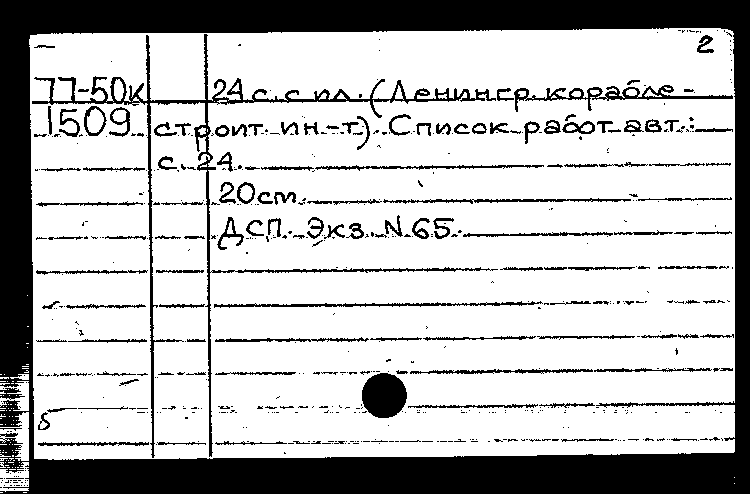 2
77-50к 24 с. с ил. (Ленингр. корабле-
1509 строит. ин-т). Список работ авт.:
с. 24.
20 см.
ДСП. Экз. N 65.